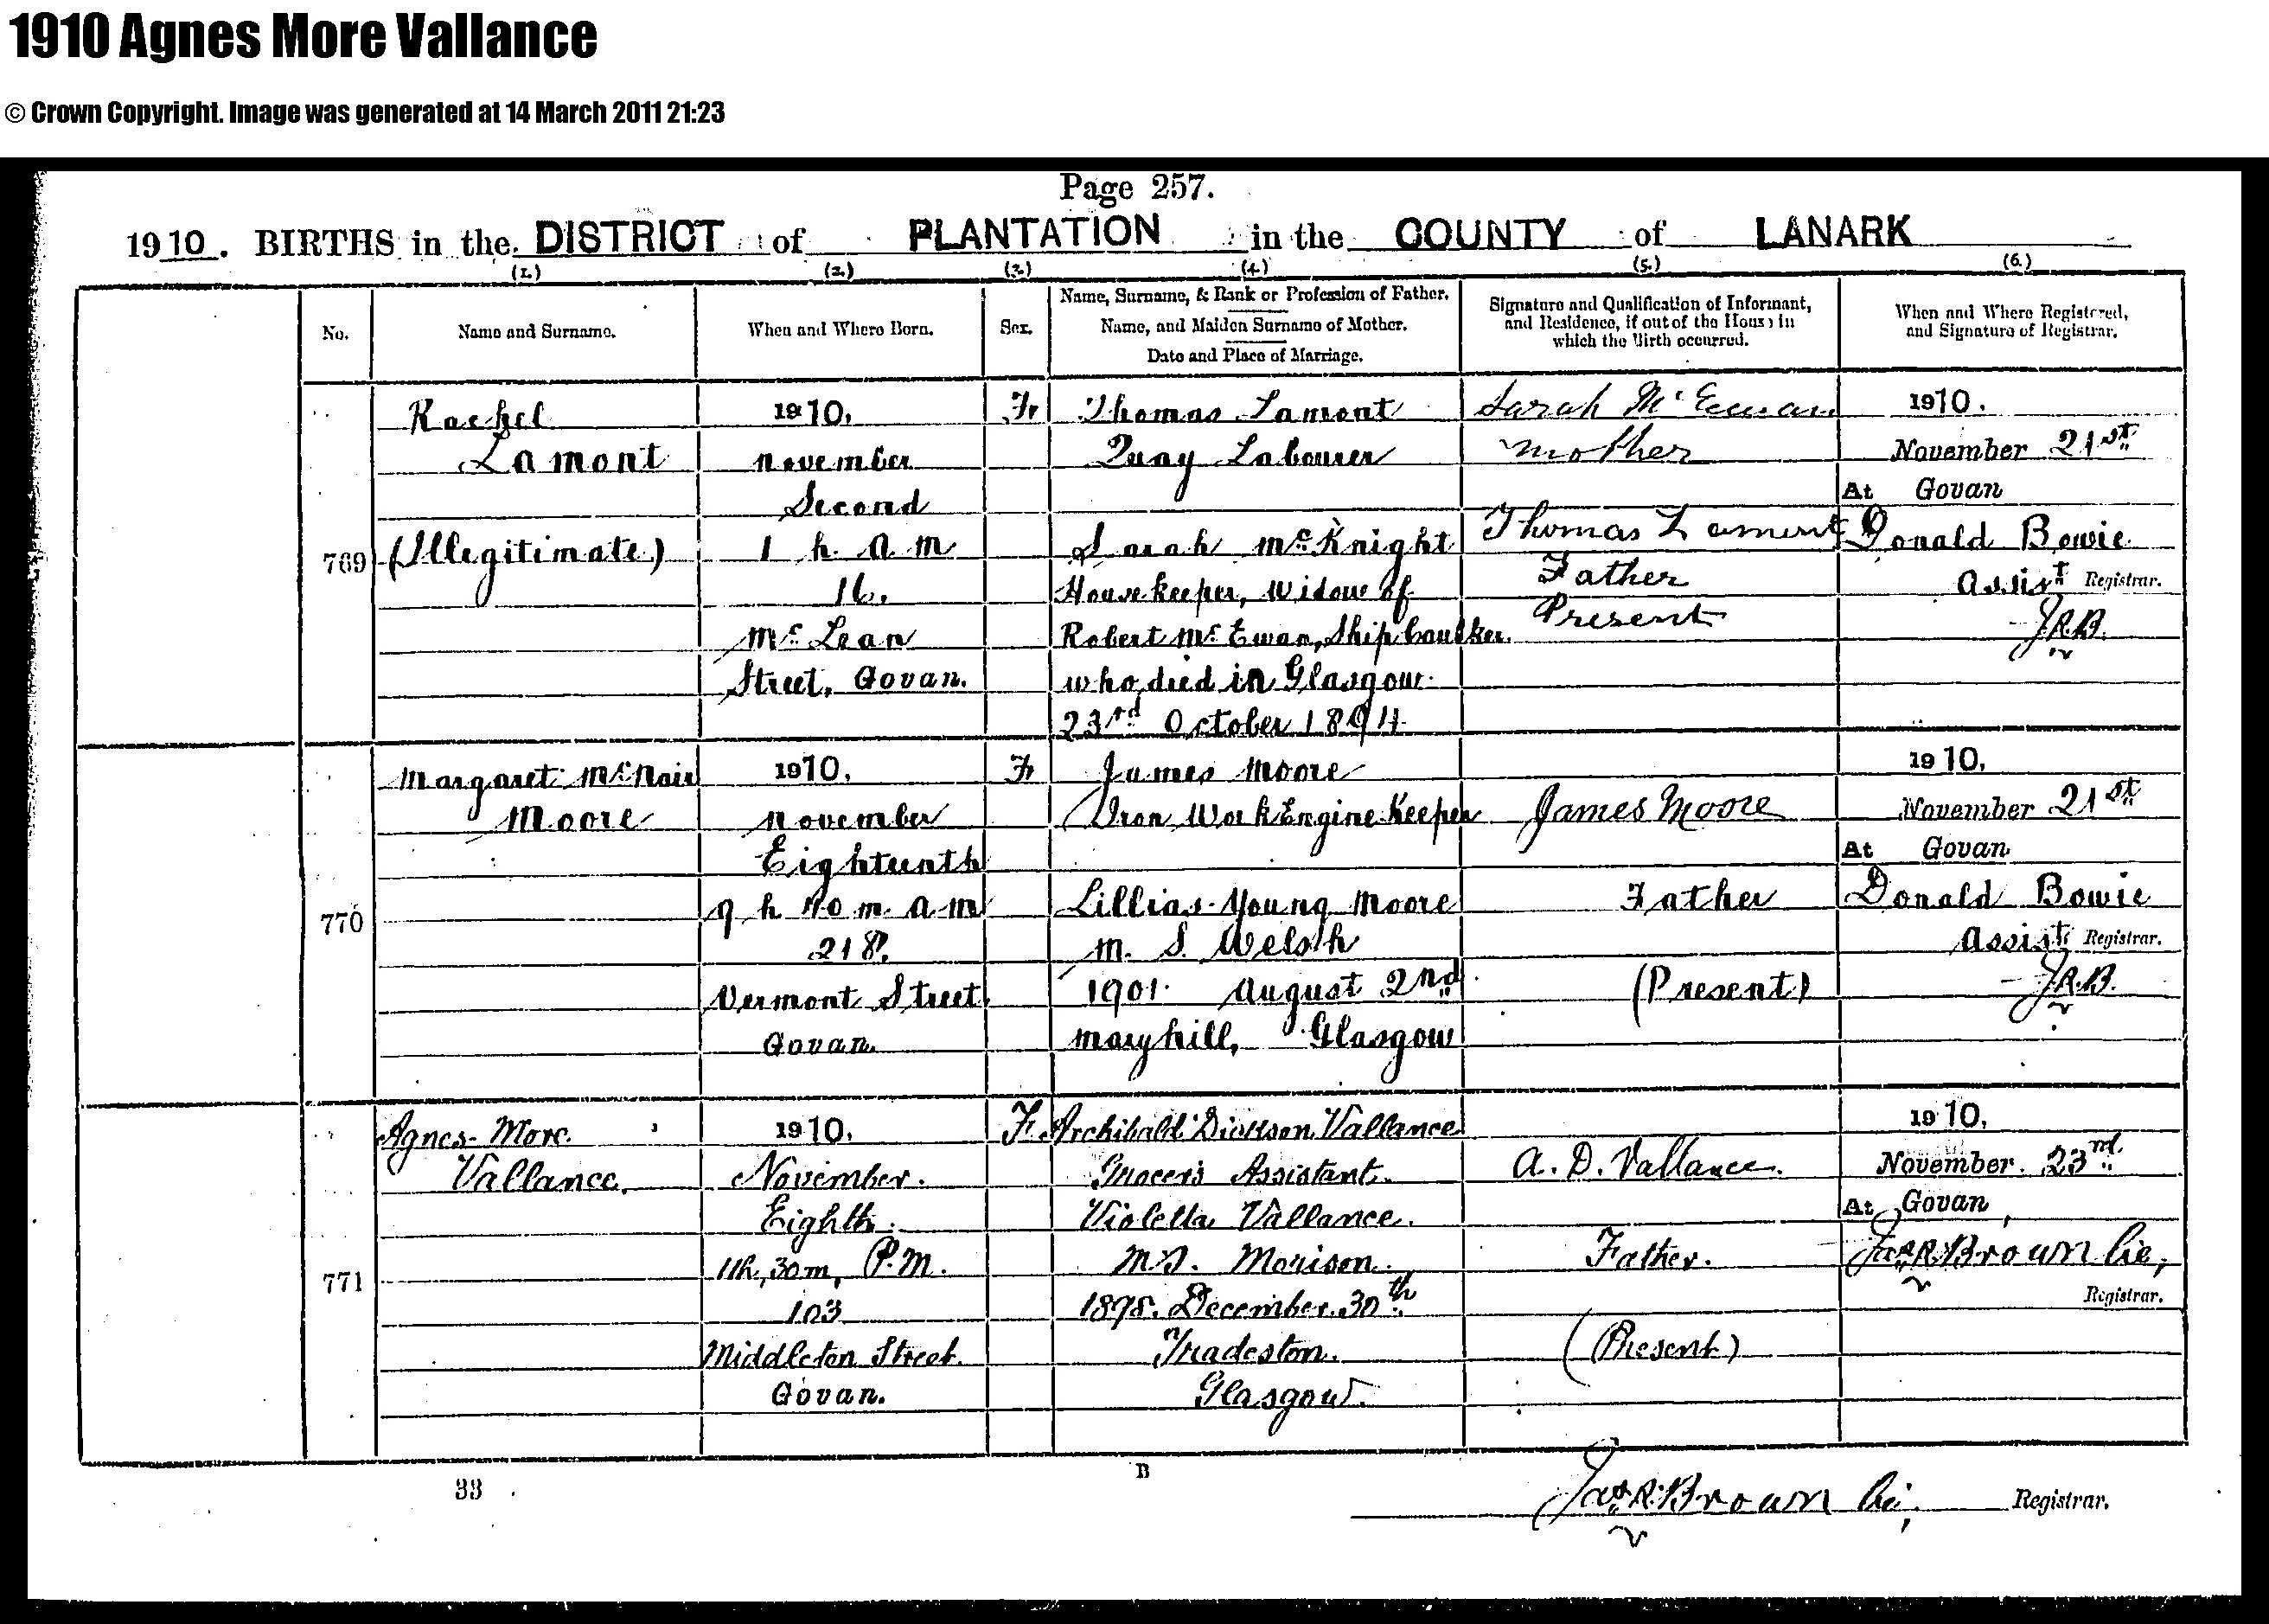 1910 Agnes More Vallance
© Crown Copyright. Image was generated at 14 March 2011 21:23
Page 257.
1910. BIRTHS in the DISTRICT of PLANTATION in the COUNTY of LANARK
(1.) (2.) (3.) (4.) (5.) (6.)
No.
Name and Surname.
When and Where Born.
Sex.
Name, Surname, & Rank or Profession of Father.
Name, and Maiden Surname of Mother.
Date and Place of Marriage.
Signature and Qualification of Informant,
and Residence, if out of the House in
which the Birth occurred.
When and Where Registered,
and Signature of Registrar.
769
Rachel
Lamont
(Illegitimate)
1910,
November
Second
1 h. A M
16.
McLean
Street, Govan.
F
Thomas Lamont
Quay Labourer
Sarah McKnight
Housekeeper, Widow of
Robert McEwan, Ship Caulker
who died in Glasgow
23rd October 1894
Sarah McEwan
Mother
Thomas Lamont
Father
Present
1910.
November 21st
At Govan
Donald Bowie
Assist Registrar.
J.R.B.
770
Margaret McNair
Moore
1910,
November
Eighteenth
9 h 40 m. A M
218,
Vermont Street
Govan
F
James Moore
Iron Work Engine Keeper
Lillias Young Moore
m. S. Welsh
1901. August 2nd
Maryhill, Glasgow
James Moore
Father
(Present)
1910,
November 21st
At Govan
Donald Bowie
Assist Registrar.
J.R.B.
771
Agnes More
Vallance.
1910,
November.
Eighth.
11h, 30m, P.M.
103
Middleton Street.
Govan.
F.
Archibald Dickson Vallance
Grocer's Assistant.
Violetta Vallance.
M.S. Morison.
1898. December 30th
Tradeston.
Glasgow.
A. D. Vallance.
Father.
(Present)
1910,
November. 23rd.
At Govan,
Jas. R. Brown
Registrar.
33 B
Jas. R. Brown Registrar.